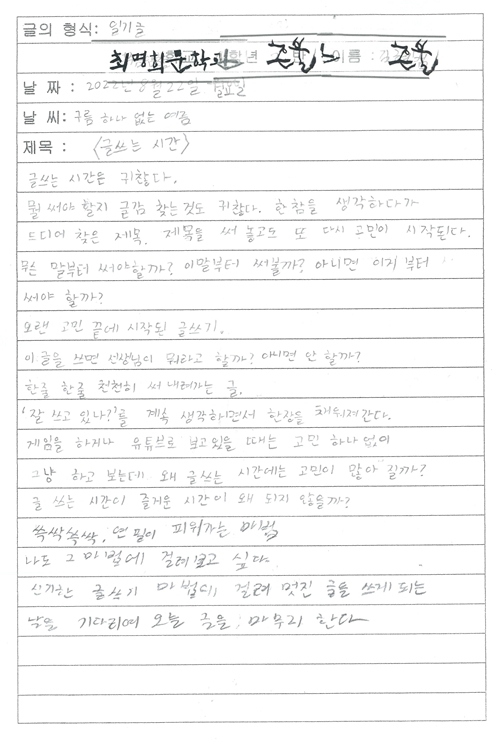 글의 형식: 일기글
최명희문학관
날 짜 : 2022년 8월 22일 월요일
날 씨: 구름 하나 없는 여름
제목 : <글쓰는 시간>
글쓰는 시간은 귀찮다.
뭘 써야 할지 글감 찾는것도 귀찮다. 한참을 생각하다가
드디어 찾은 제목. 제목을 써 놓고도 또 다시 고민이 시작된다.
무슨 말부터 써야할까? 이말부터 써볼까? 아니면 이거부터
써야 할까?
오랜 고민 끝에 시작된 글쓰기.
이 글을 쓰면 선생님이 뭐라고 할까? 아니면 안 할까?
한줄 한줄 천천히 써 내려가는 글.
'잘 쓰고 있나?'를 계속 생각하면서 한장을 채워져간다.
게임을 하거나 유튜브로 보고있을 때는 고민 하나없이
그냥 하고 보는데 왜 글쓰는 시간에는 고민이 많아 질까?
글 쓰는 시간이 즐거운 시간이 왜 되지 않을까?
쓱싹쓱싹, 연필이 피워가는 마법
나도 그 마법에 걸려보고 싶다.
신기한 글쓰기 마법에 걸려 멋진 글을 쓰게 되는
날을 기다리며 오늘 글을 마무리 한다